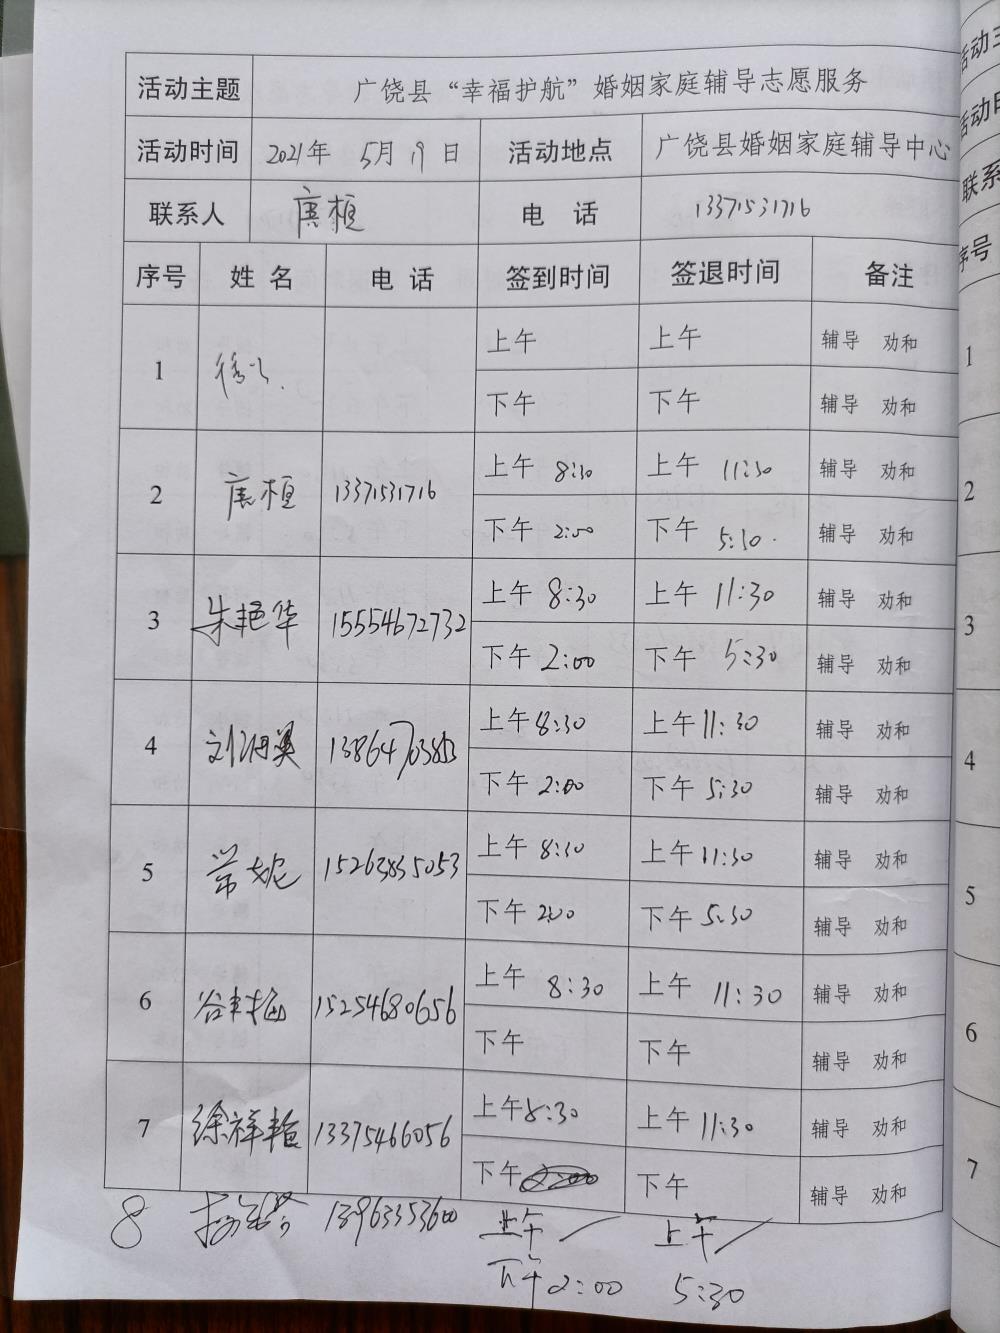 活动主题 广饶县“幸福护航”婚姻家庭辅导志愿服务
活动时间 2021年 5月 19日 活动地点 广饶县婚姻家庭辅导中心
联系人 唐桓 电 话 13371531716
序号 姓 名 电 话 签到时间 签退时间 备注
1 上午 上午 辅导 劝和
下午 下午 辅导 劝和
2 唐桓 13371531716 上午 8:30 上午 11:30 辅导 劝和
下午 2:00 下午 5:30 辅导 劝和
3 朱艳华 15554672732 上午 8:30 上午 11:30 辅导 劝和
下午 2:00 下午 5:30 辅导 劝和
4 上午 8:30 上午 11:30 辅导 劝和
下午 2:00 下午 5:30 辅导 劝和
5 常妮 15263835053 上午 8:30 上午 11:30 辅导 劝和
下午 2:00 下午 5:30 辅导 劝和
6 15254680656 上午 8:30 上午 11:30 辅导 劝和
下午 下午 辅导 劝和
7 徐祥艳 13375466056 上午 8:30 上午 11:30 辅导 劝和
下午 下午 辅导 劝和
8 13963353600 上午 / 上午 /
下午 2:00 5:30
活动主
活动时
联系
序号
1
2
3
4
5
6
7